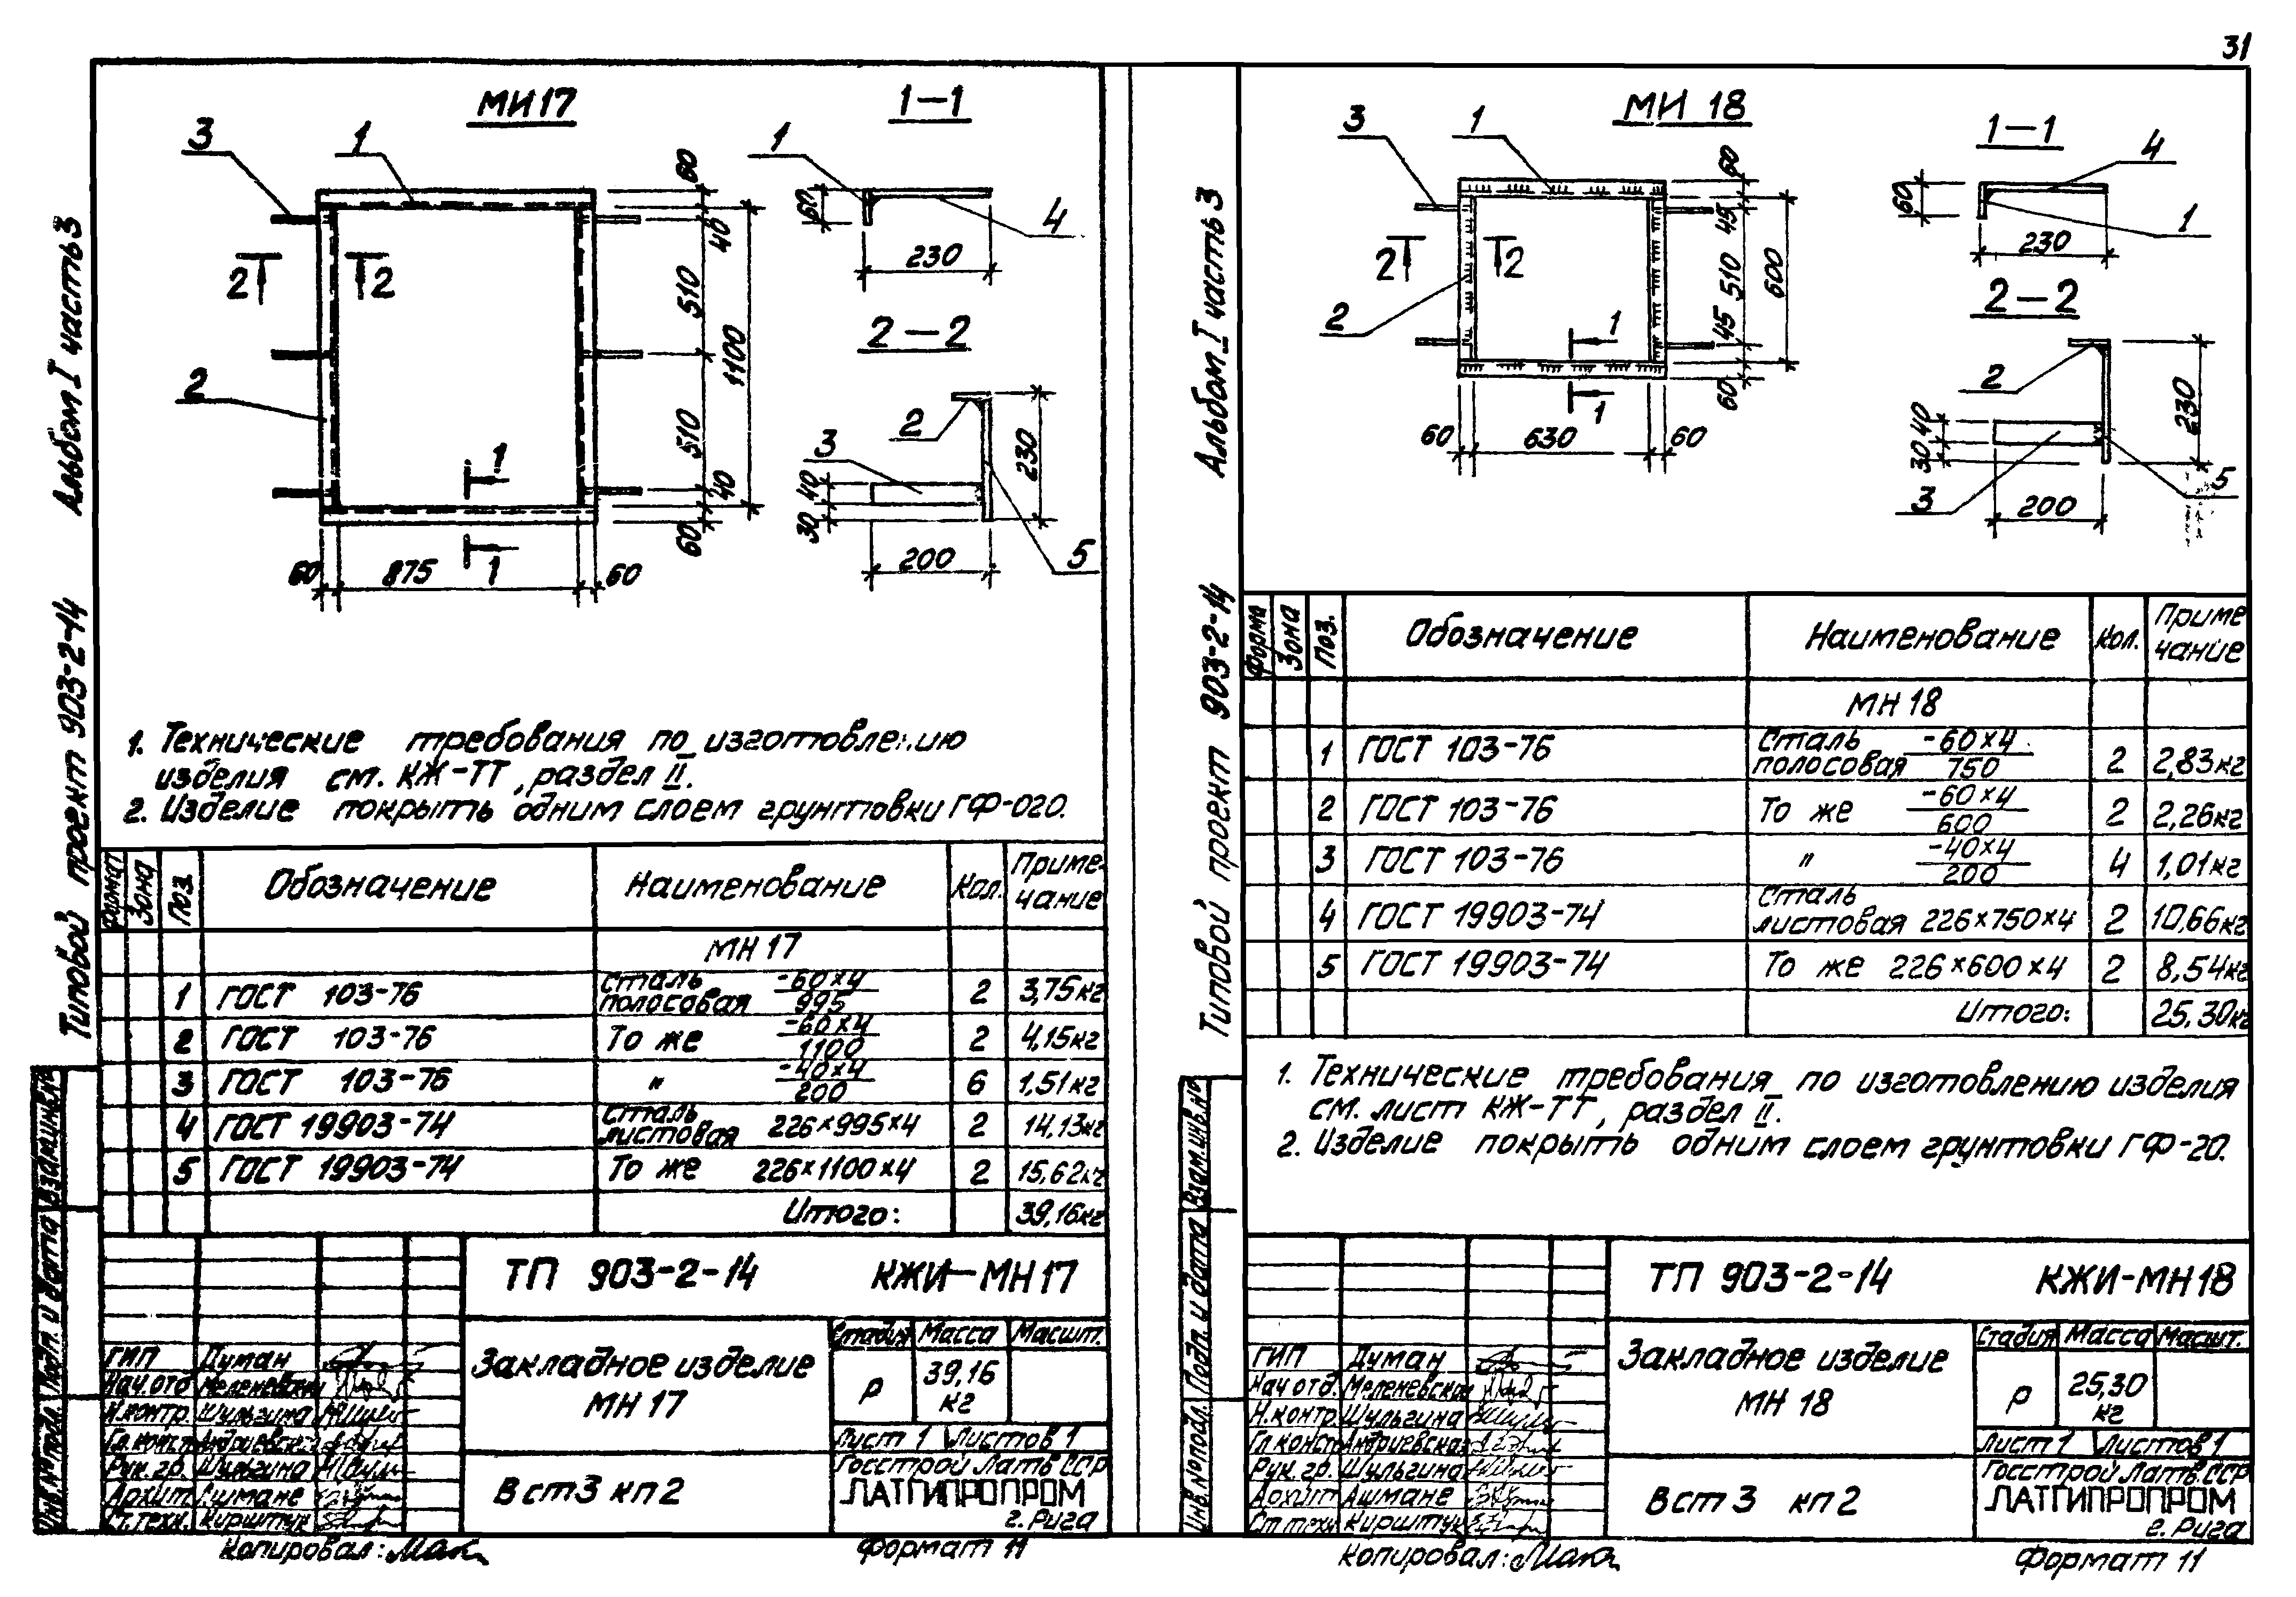 31
Альбом I часть 3
Типовой проект 903-2-14
МИ17
3
1
2
2
2
1
1
60
40
510
1100
510
40
60
60
875
60
1-1
1
4
60
230
2-2
2
3
5
40
30
230
200
1. Технические требования по изготовлению
изделия см. КЖ-ТТ, раздел II.
2. Изделие покрыть одним слоем грунтовки ГФ-020.
Формат Зона Поз. Обозначение Наименование Кол. Приме-
чание
МН 17
1 ГОСТ 103-76 Сталь полосовая -60×4/995 2 3,75кг
2 ГОСТ 103-76 То же -60×4/1100 2 4,15кг
3 ГОСТ 103-76 " -40×4/200 6 1,51кг
4 ГОСТ 19903-74 Сталь листовая 226×995×4 2 14,13кг
5 ГОСТ 19903-74 То же 226×1100×4 2 15,62кг
Итого: 39,16кг
ТП 903-2-14 КЖИ-МН17
Закладное изделие
МН 17
Стадия Масса Масшт.
Р 39,16
кг
Лист 1 Листов 1
В ст3 кп2
Госстрой Латв ССР
ЛАТГИПРОПРОМ
г. Рига
ГИП Думан
Нач.отд Меленевский
Н.контр. Шульгина
Гл.констр Андриевская
Рук. гр. Шульгина
Архит. Ашмане
Ст.техн. Кирштук
Взам.инв.№
Подп. и дата
Инв.№подл.
Копировал:
Формат 11
Альбом I часть 3
Типовой проект 903-2-14
МИ 18
3
1
2
2
2
1
1
60
45
510
600
45
60
60
630
60
1-1
4
1
60
230
2-2
2
3
5
40
30
230
200
Форма Зона Поз. Обозначение Наименование Кол. Приме
чание
МН 18
1 ГОСТ 103-76 Сталь полосовая -60×4/750 2 2,83кг
2 ГОСТ 103-76 То же -60×4/600 2 2,26кг
3 ГОСТ 103-76 " -40×4/200 4 1,01кг
4 ГОСТ 19903-74 Сталь листовая 226×750×4 2 10,66кг
5 ГОСТ 19903-74 То же 226×600×4 2 8,54кг
Итого: 25,30кг
1. Технические требования по изготовлению изделия
см. лист КЖ-ТТ, раздел II.
2. Изделие покрыть одним слоем грунтовки ГФ-20.
ТП 903-2-14 КЖИ-МН18
Закладное изделие
МН 18
Стадия Масса Масшт.
Р 25,30
кг
Лист 1 Листов 1
Вст3 кп2
Госстрой Латв.ССР
ЛАТГИПРОПРОМ
г. Рига
ГИП Думан
Нач отд. Меленевский
Н.контр Шульгина
Гл.констр Андриевская
Рук. гр. Шульгина
Архит Ашмане
Ст.техн Кирштук
Взам.инв.№
Подп. и дата
Инв.№подл.
Копировал:
Формат 11